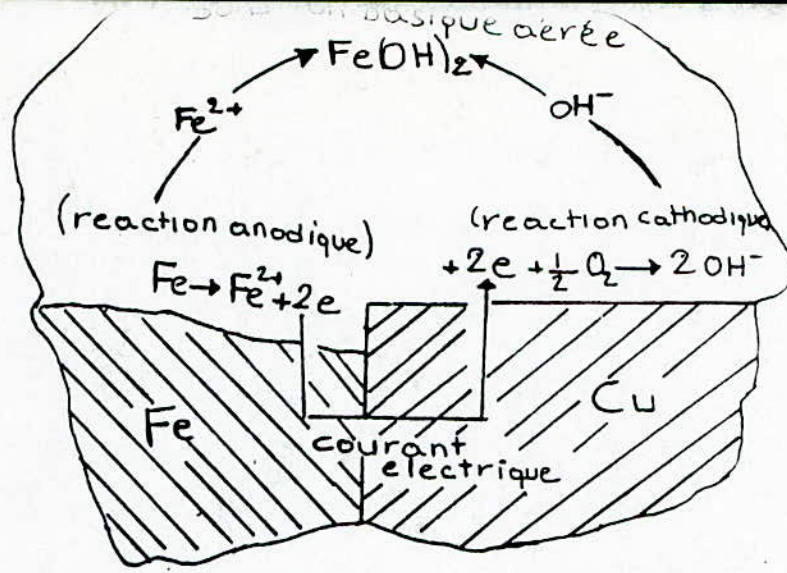 basique aérée
Fe(OH)₂
Fe²⁺
OH⁻
(reaction anodique)
(reaction cathodique
Fe→Fe²⁺+2e
+2e+½O₂→2OH⁻
Fe
Cu
courant
electrique